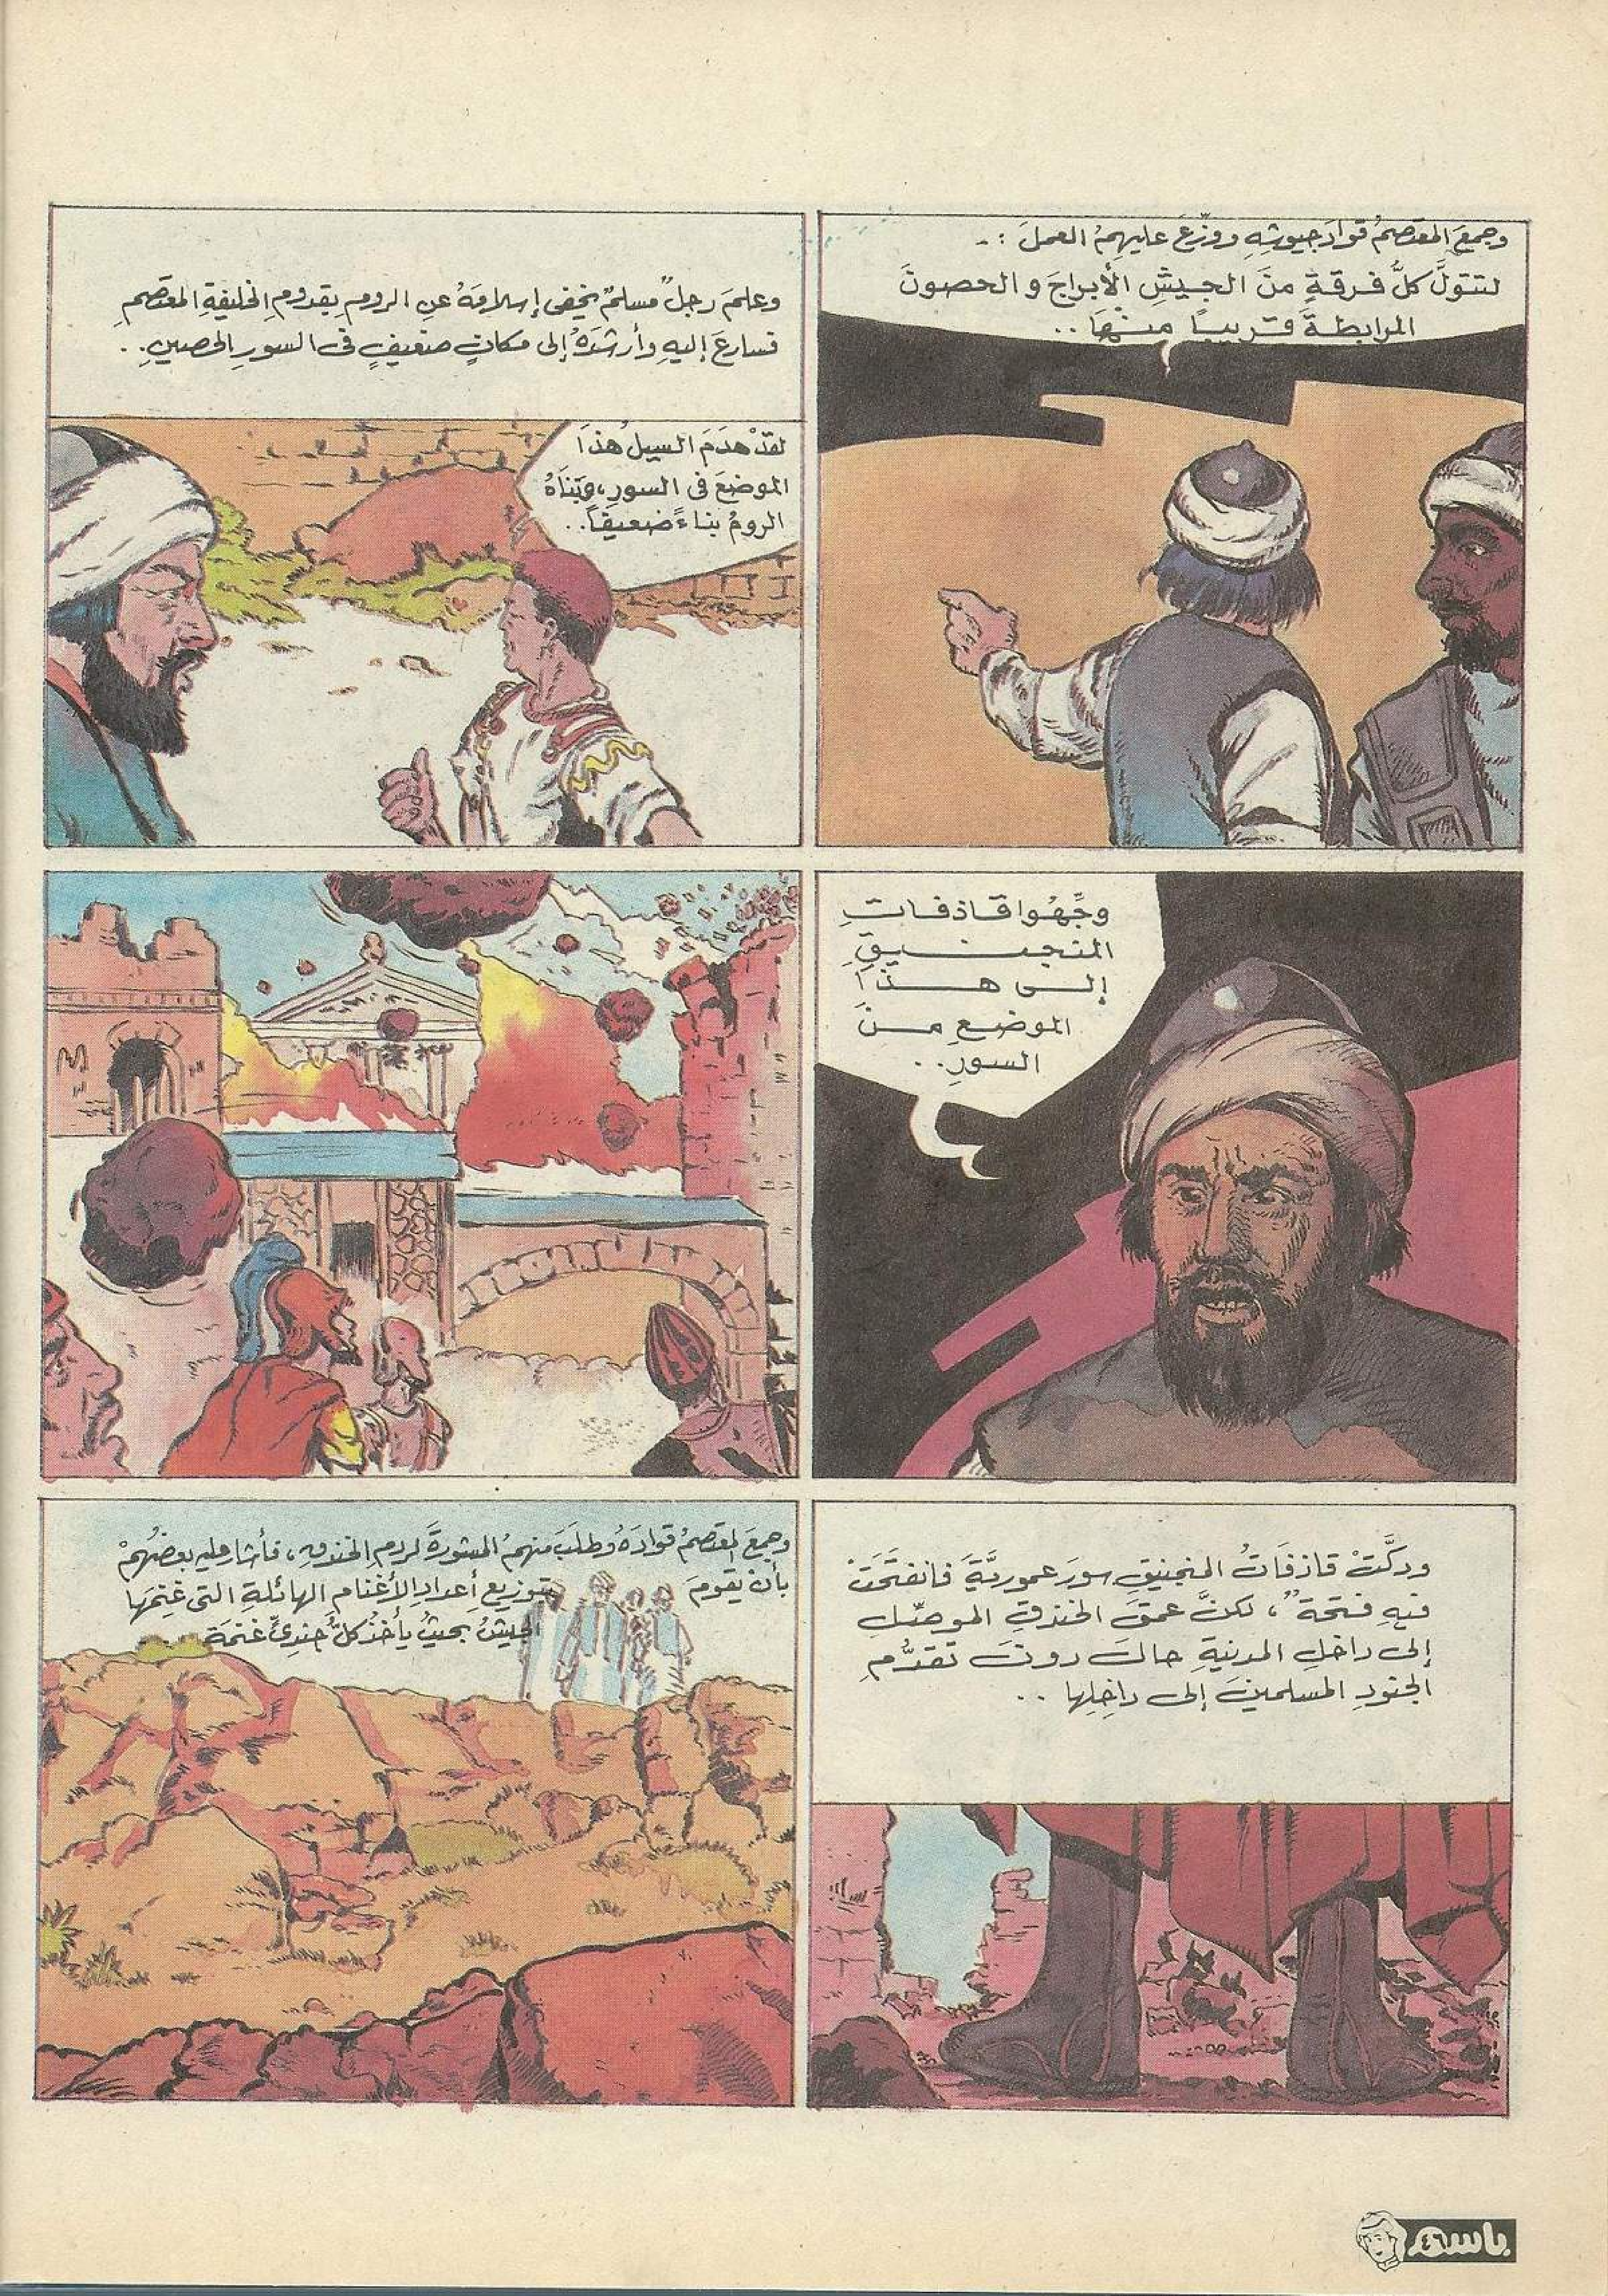 وجمعَ المعتصمُ قوادَ جيوشِهِ ووزّعَ عليهِمُ العملَ :-
لتتولَّ كلُّ فرقةٍ منَ الجيشِ الأبراجَ والحصونَ
المرابطةَ قريباً منهَا..
وعلمَ رجلٌ مسلمٌ يخفى إسلامَهُ عنِ الرومِ بقدومِ الخليفةِ المعتصمِ
فسارعَ إليهِ وأرشدَهُ إلى مكانٍ ضعيفٍ فى السورِ الحصينِ..
لقدْ هدَمَ السيلُ هذَا
الموضعَ فى السورِ، وبَنَاهُ
الرومُ بناءً ضعيفاً..
وجِّهُوا قاذفاتِ
المنجنيقِ
إلى هذَا
الموضعِ منَ
السورِ..
ودكَّتْ قاذفَاتُ المنجنيقِ سورَ عموريَّةَ فانفتَحَتْ
فيهِ فتحةٌ، لكنَّ عمقَ الخندقِ الموصِّلِ
إلى داخلِ المدينةِ حالَ دونَ تقدُّمِ
الجنودِ المسلمينَ إلى داخِلِها ..
وجمعَ المعتصمُ قوادَهُ وطلَبَ منهمُ المشورةَ لردمِ الخندقِ، فأشار عليهِ بعضُهُمْ
بأنْ يقومَ بتوزيعِ أعدادِ الأغنامِ الهائلةِ التى غنِمَها
الجيشُ بحيثُ يأخُذُ كلُّ جندىٍّ غنمَة ..
باسم
٤٦